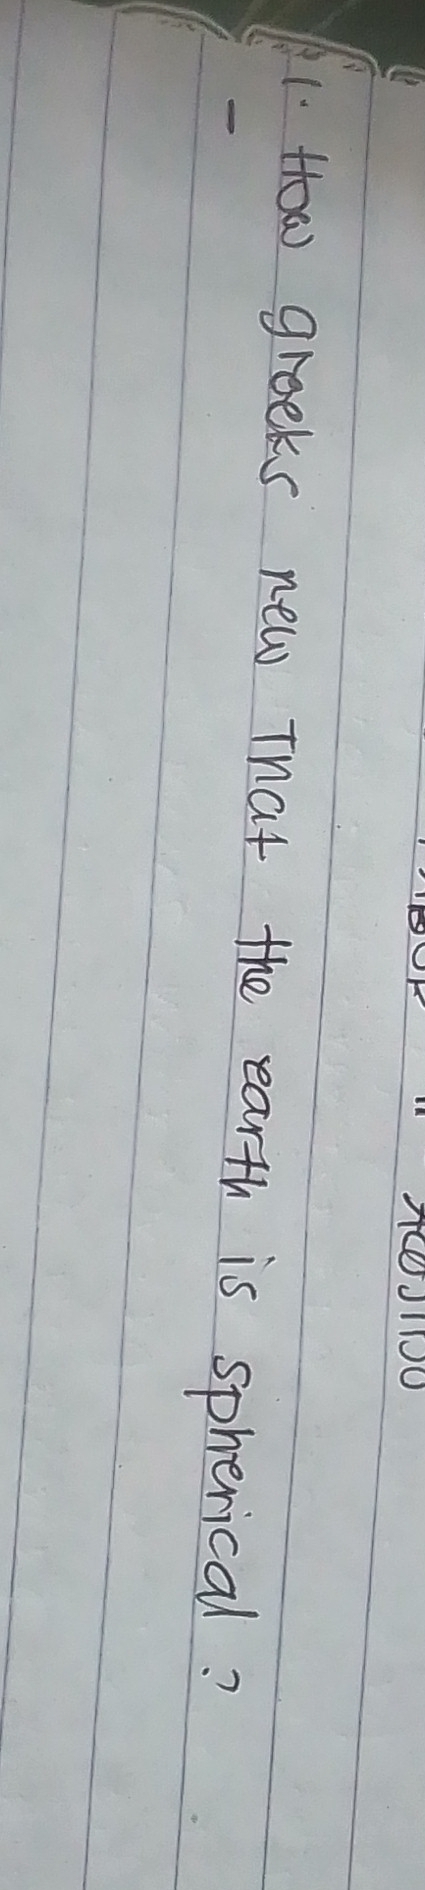 1. How greeks new that the earth is spherical ?
-